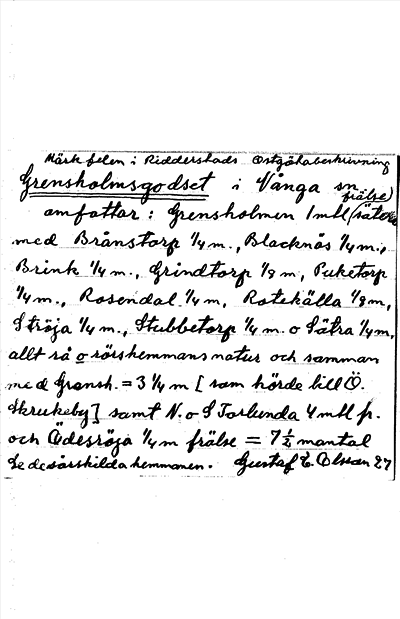 Märk felen i Ridderstads Östgötabeskrivning
Grensholmsgodset i Vånga sn
frälse)
omfattar: Grensholmen 1 mtl (säteri
med Brånstorp 1/4 m., Blacknäs 1/4 m.,
Brink 1/4 m., Grindtorp 1/8 m, Puketorp
1/4 m., Rosendal 1/4 m, Rotekälla 1/8 m,
Ströja 1/4 m., Stubbetorp 1/4 m. o Sätra 1/4 m,
allt rå o rörshemmans natur och samman
med Gransh. = 3 1/4 m [som hörde till Ö.
Skrukeby] samt N. o S Torlunda 4 mtl fr.
och Ödesröja 1/4 m frälse = 7 1/2 mantal
Se de särskilda hemmanen. Gustaf E. Olsson 27